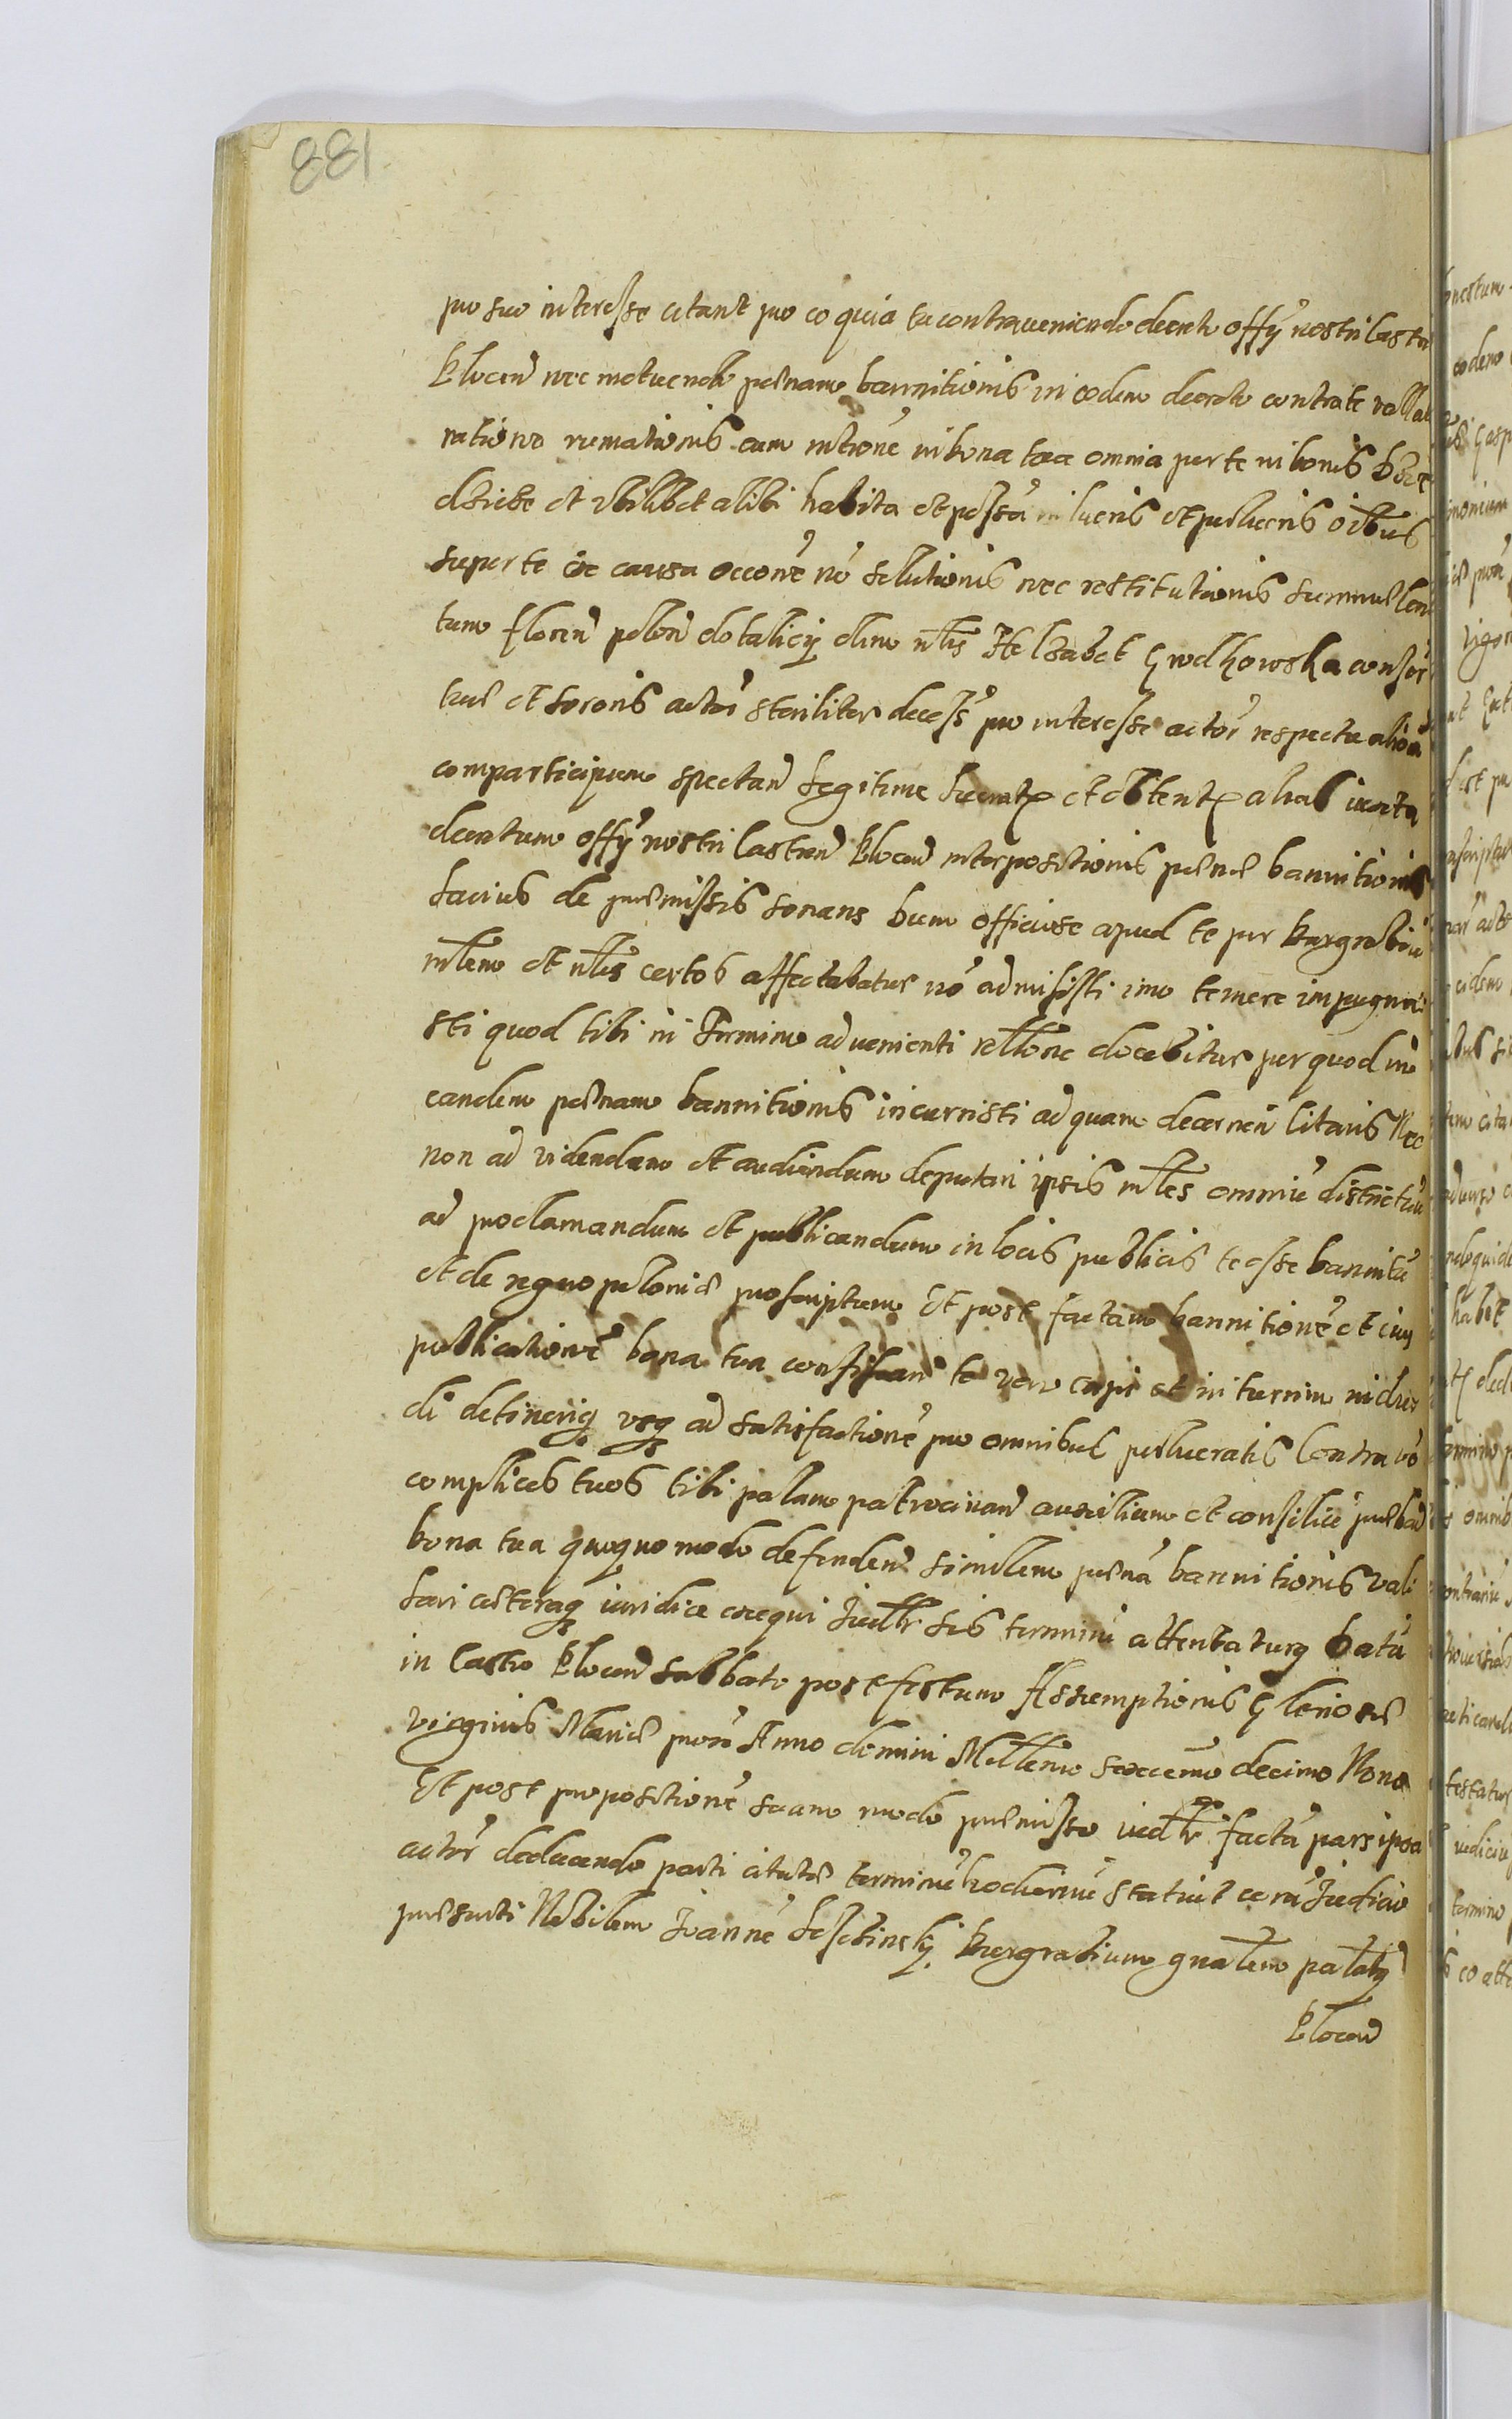 881
pro suo interesse citant pro eo quia tu contraveniendo decreto offÿ nostri Castrn
Plocen nec metuendo poenam bannitionis in eodem decreto contra te valla
ratione rumationis eum intione in bona tua omnia per te in bonis
et ubilibet alibi habita et possa in lucris et perlucris oibus
super te ex causa occone no solutionis nec restitutionis summae Cen
tum floren polon dotalicÿ olim nlis Helzabet Grodkowska consor
tus et sororis actor steriliter decess pro interesse actor respectu alior
comparticipum spectan legitime lucrat et obtent alias iuxta
decretum offÿ nostri Castren Plocen interpositionis poenae bannitionis
lacius de praemissis sonans bum officiose apud te per Burgrabiu
mlem et nles certos affectabatur no admisisti imo temere impugna
sti quod tibi in Termino advenienti rellone docebitur per quod in
eandem poenam bannitionis incurristi ad quam decernen citaris Nec
non ad videndum et audiendum deputari ipsis mles omniu districtuu
ad proclamandum et publicandum in locis publicis te esse bannitu
et de regno poloniae proscriptum Et post factam bannitione et eius
publicatione bona tua confiscari te vero capi et in turrim
di detineriq usq ad satisfactione pro omnibus perlucratis Contra vo
complices tuos tibi palam patrocinan auxilium et consiliu praeben
bona tua quoquomodo defenden similem poena bannitionis vali
lari caeteraq iuridice exequi Iudlr sis termini attentaturq Datu
in Castro Plocen Sabbato post festum Assumptionis Gloriosae
virginis Mariae prox Anno domini Millemo sexcemo decimo Nono
Et post propositione suam modo praemisso iudlr facta pars ipsa
actor deducendo parti citatae terminu hodiernu statuit coru Iudicio
praesenti Nobilem Ioanne Burgrabium gnalem palatÿ
Plocen